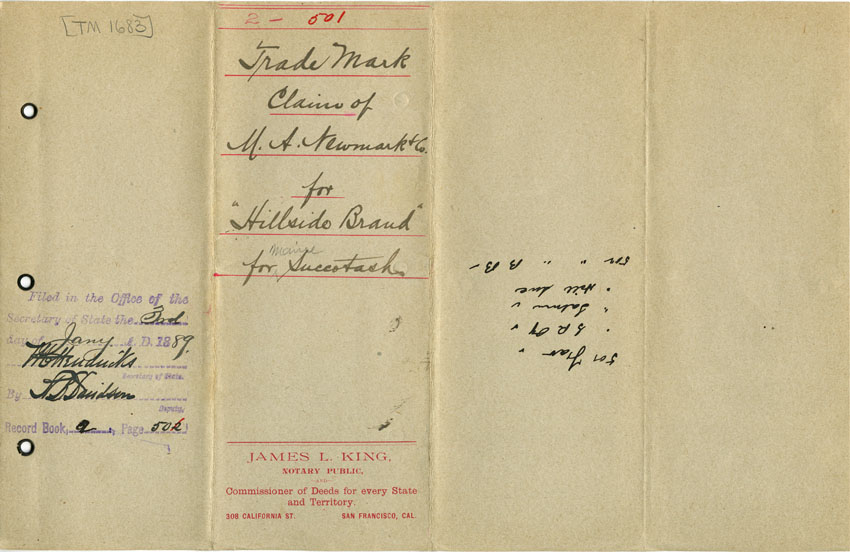 [TM 1683]
Filed in the Office of the
Secretary of State the 3rd
day of Jany A.D. 1889.
W C Hendricks
Secretary of State.
By
Davidson
Deputy.
Record Book, 2, Page 502
2 - 501
Trade Mark
Claim of
M. A. Newmark & Co.
for
"Hillside Brand"
for Maine Succotash
JAMES L. KING,
NOTARY PUBLIC,
AND
Commissioner of Deeds for every State
and Territory.
308 CALIFORNIA ST. SAN FRANCISCO, CAL.
501
" S R
" Hill
501 " " B B -